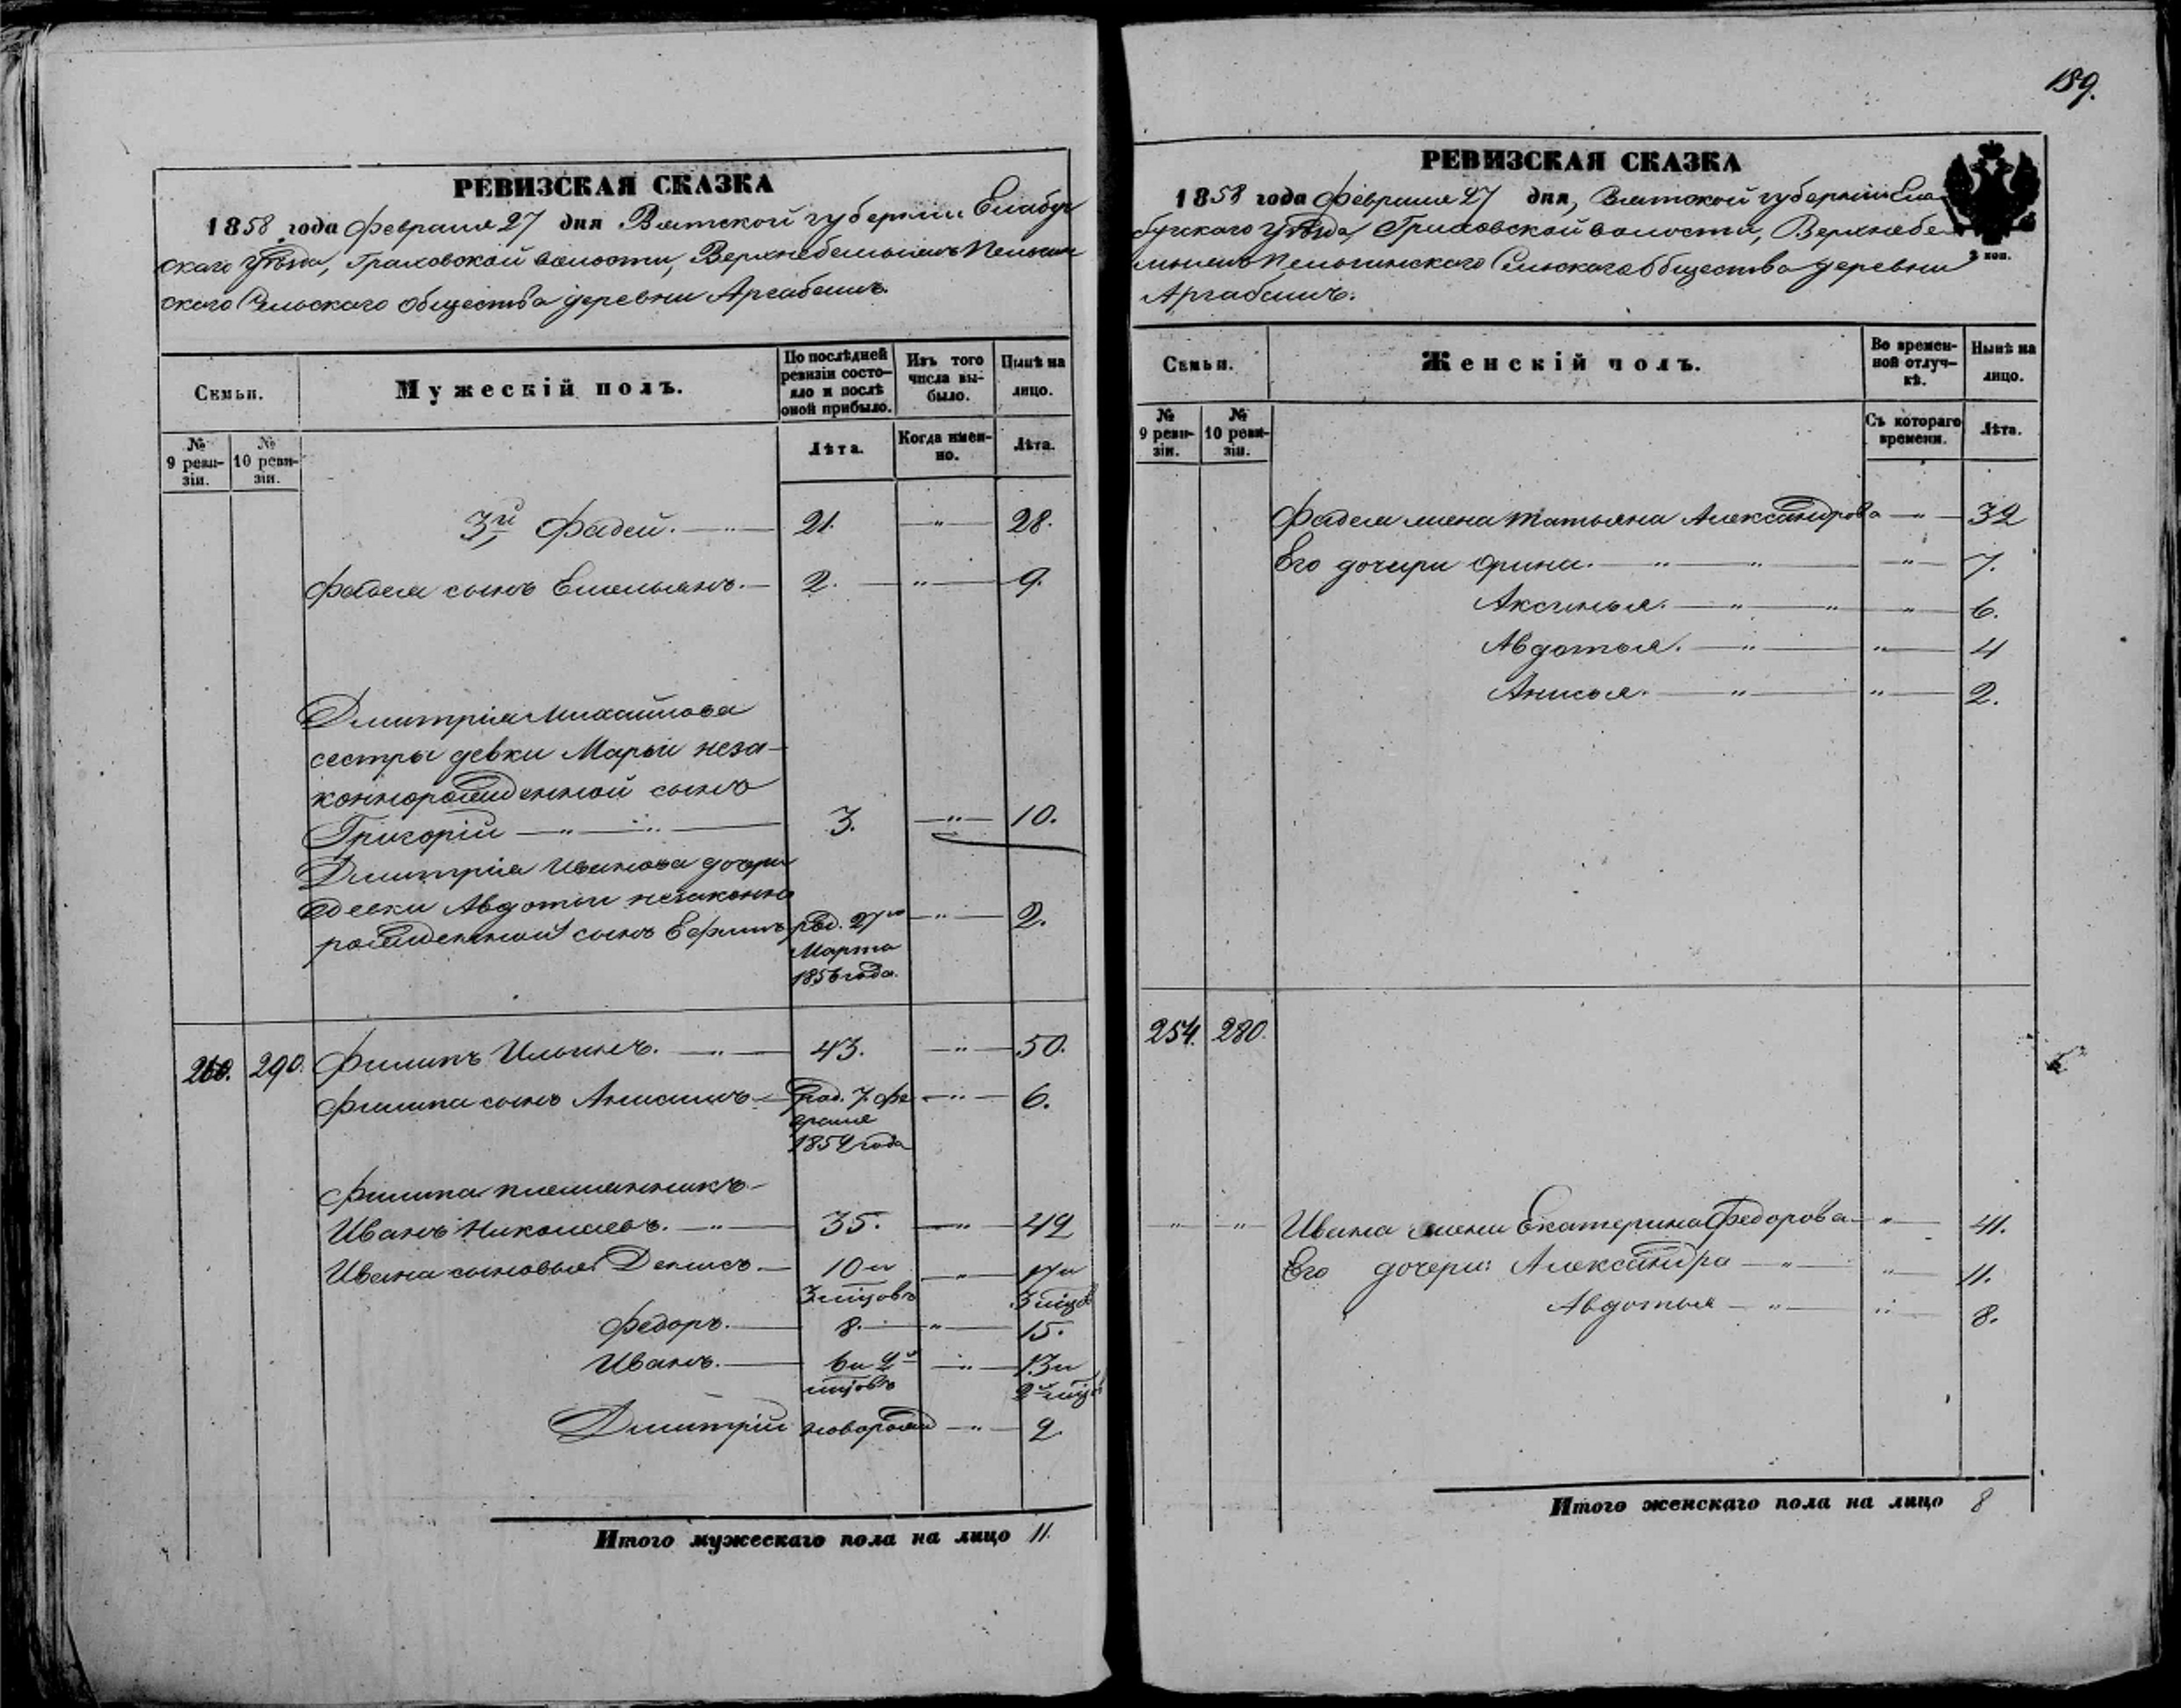 189.
РЕВИЗСКАЯ СКАЗКА
1858 года февраля 27 дня Вятской губернии Елабуж
скаго уѣзда, Граховской волости,
скаго Сельскаго общества деревни Аргабашъ.
Семьи.
Мужескій полъ.
По послѣдней ревизіи состо-
яло и послѣ
оной прибыло.
Изъ того
числа вы-
было.
Нынѣ на
лицо.
№
9 реви-
зіи.
№
10 реви-
зіи.
Лѣта.
Когда имен-
но.
Лѣта.
3й Фадей. — " — 21. — " — 28.
Фадея сынъ Емельянъ. — 2. — " — 9.
Дмитрія Михайлова
сестры девки Марьи неза-
коннорожденной сынъ
Григорій — " — " — 3. — " — 10.
Дмитрія Иванова дочери
девки Авдотьи незаконно
рожденной сынъ Ефимъ род. 27го — " — 2.
Марта
1856 года.
260. 290. Филипъ Ильинъ. — " — 43. — " — 50.
Филипа сынъ Анисимъ — род. 7. фе — " — 6.
враля
1852 года
Филипа племянникъ
Иванъ Николаевъ. — " — 35. — " — 42
Ивана сыновья: Денисъ — 10 и — " — 17 и
3 мцовъ 3 мцов
Федоръ. — 8. — " — 15.
Иванъ. — 6 и 2х — " — 13 и
мцовъ 2х мцо
Дмитрій новорожд — " — 2.
Итого мужескаго пола на лицо 11.
РЕВИЗСКАЯ СКАЗКА
1858 года февраля 27 дня, Вятской губерніи Ела
бужскаго уѣзда Граховской волости,
Сельскаго общества деревни
Аргабашъ.
3 коп.
Семьи.
Женскій полъ.
Во времен-
ной отлуч-
кѣ.
Нынѣ на
лицо.
№
9 реви-
зіи.
№
10 реви-
зіи.
Съ котораго
времени.
Лѣта.
Фадея жена Татьяна Александрова — " — 32
Его дочери Орина. — " — " — " — 7.
Аксинья. — " — " — " — 6.
Авдотья. — " — " — 4
Анисья. — " — " — 2.
254. 280.
" " Ивана жена Екатерина Федорова — " — 41.
Его дочери: Александра — " — " — 11.
Авдотья — " — " — 8.
Итого женскаго пола на лицо 8